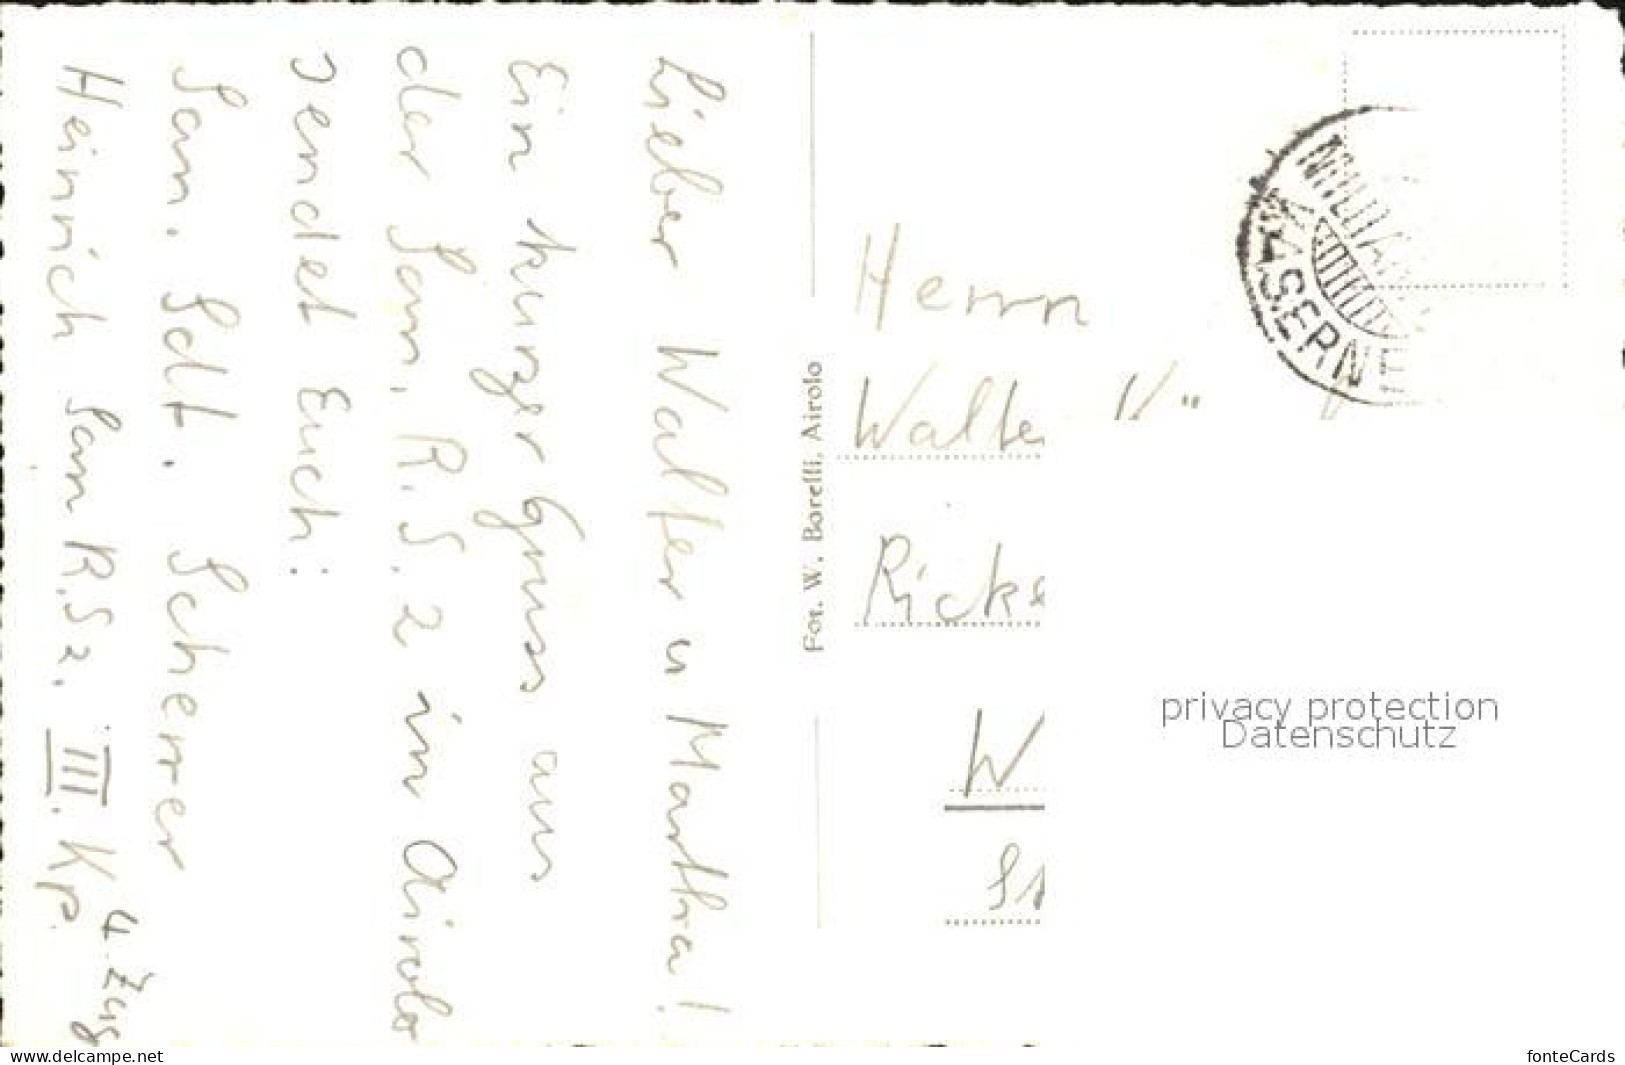 Lieber Walter u Martha!
Ein kurzer Gruss aus
der San. R.S. 2 in Airolo
sendet Euch:
San. Sdt. Scherrer
Heinrich San R.S 2. III. Kp.
4. Zug
Fot. W. Borelli, Airolo
MILITÄR
KASERN
Herrn
Walte
Ricke
W
privacy protection
Datenschutz
www.delcampe.net
fonteCards